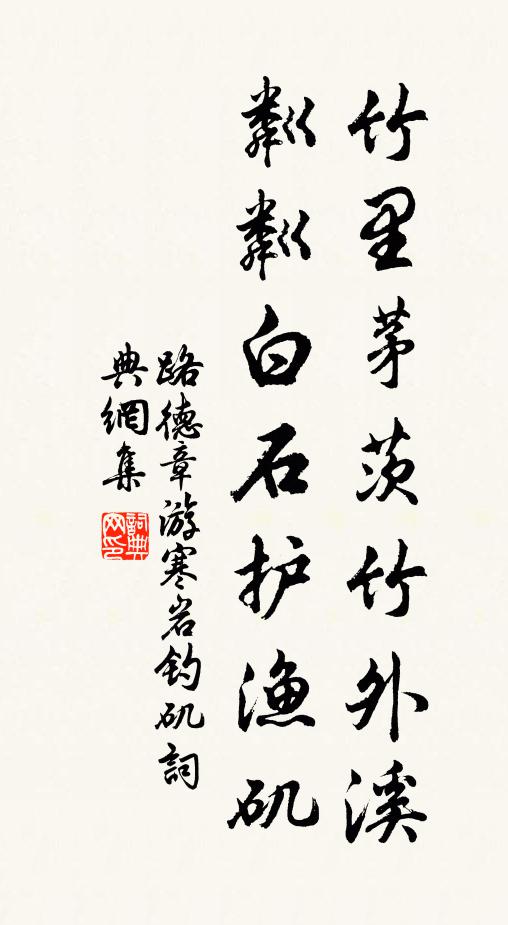 竹里茅茨竹外溪
粼粼白石护渔矶
路德章游寒岩钓矶詞
典網集
詞典
网印